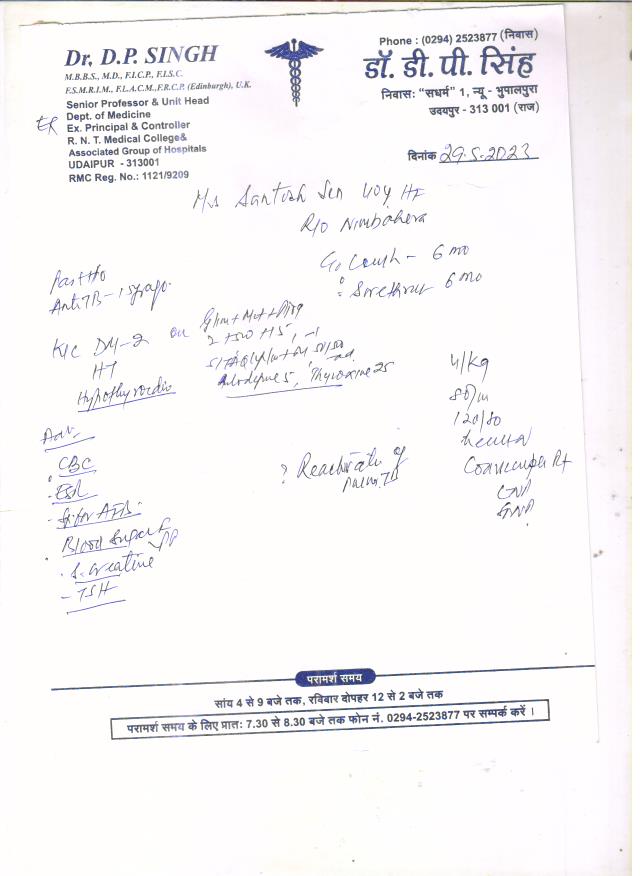 Dr. D.P. SINGH
M.B.B.S., M.D., F.I.C.P., F.I.S.C.
F.S.M.R.I.M., F.L.A.C.M.,F.R.C.P. (Edinburgh), U.K.
Senior Professor & Unit Head
Dept. of Medicine
Ex. Principal & Controller
R. N. T. Medical College&
Associated Group of Hospitals
UDAIPUR - 313001
RMC Reg. No.: 1121/9209
Phone : (0294) 2523877 (निवास)
डॉ. डी. पी. सिंह
निवास: “सधर्म” 1, न्यू - भुपालपुरा
उदयपुर - 313 001 (राज)
दिनांक 29.5.2023
Santosh Sen
R/O Nimbahera
Cough - 6 mo
6 mo
Past H/o
Anti TB -
K/C DM-2 on
HT
Hypothyroidis
Amlodipine 5, Thyroxine 25
80/m
120/80
Adv.
CBC
- ESR
- Sp for AFB
Blood Sugar F
PP
- S. creatine
- TSH
? Reactivation of
Pulm. TB
परामर्श समय
सांय 4 से 9 बजे तक, रविवार दोपहर 12 से 2 बजे तक
परामर्श समय के लिए प्रात: 7.30 से 8.30 बजे तक फोन नं. 0294-2523877 पर सम्पर्क करें ।